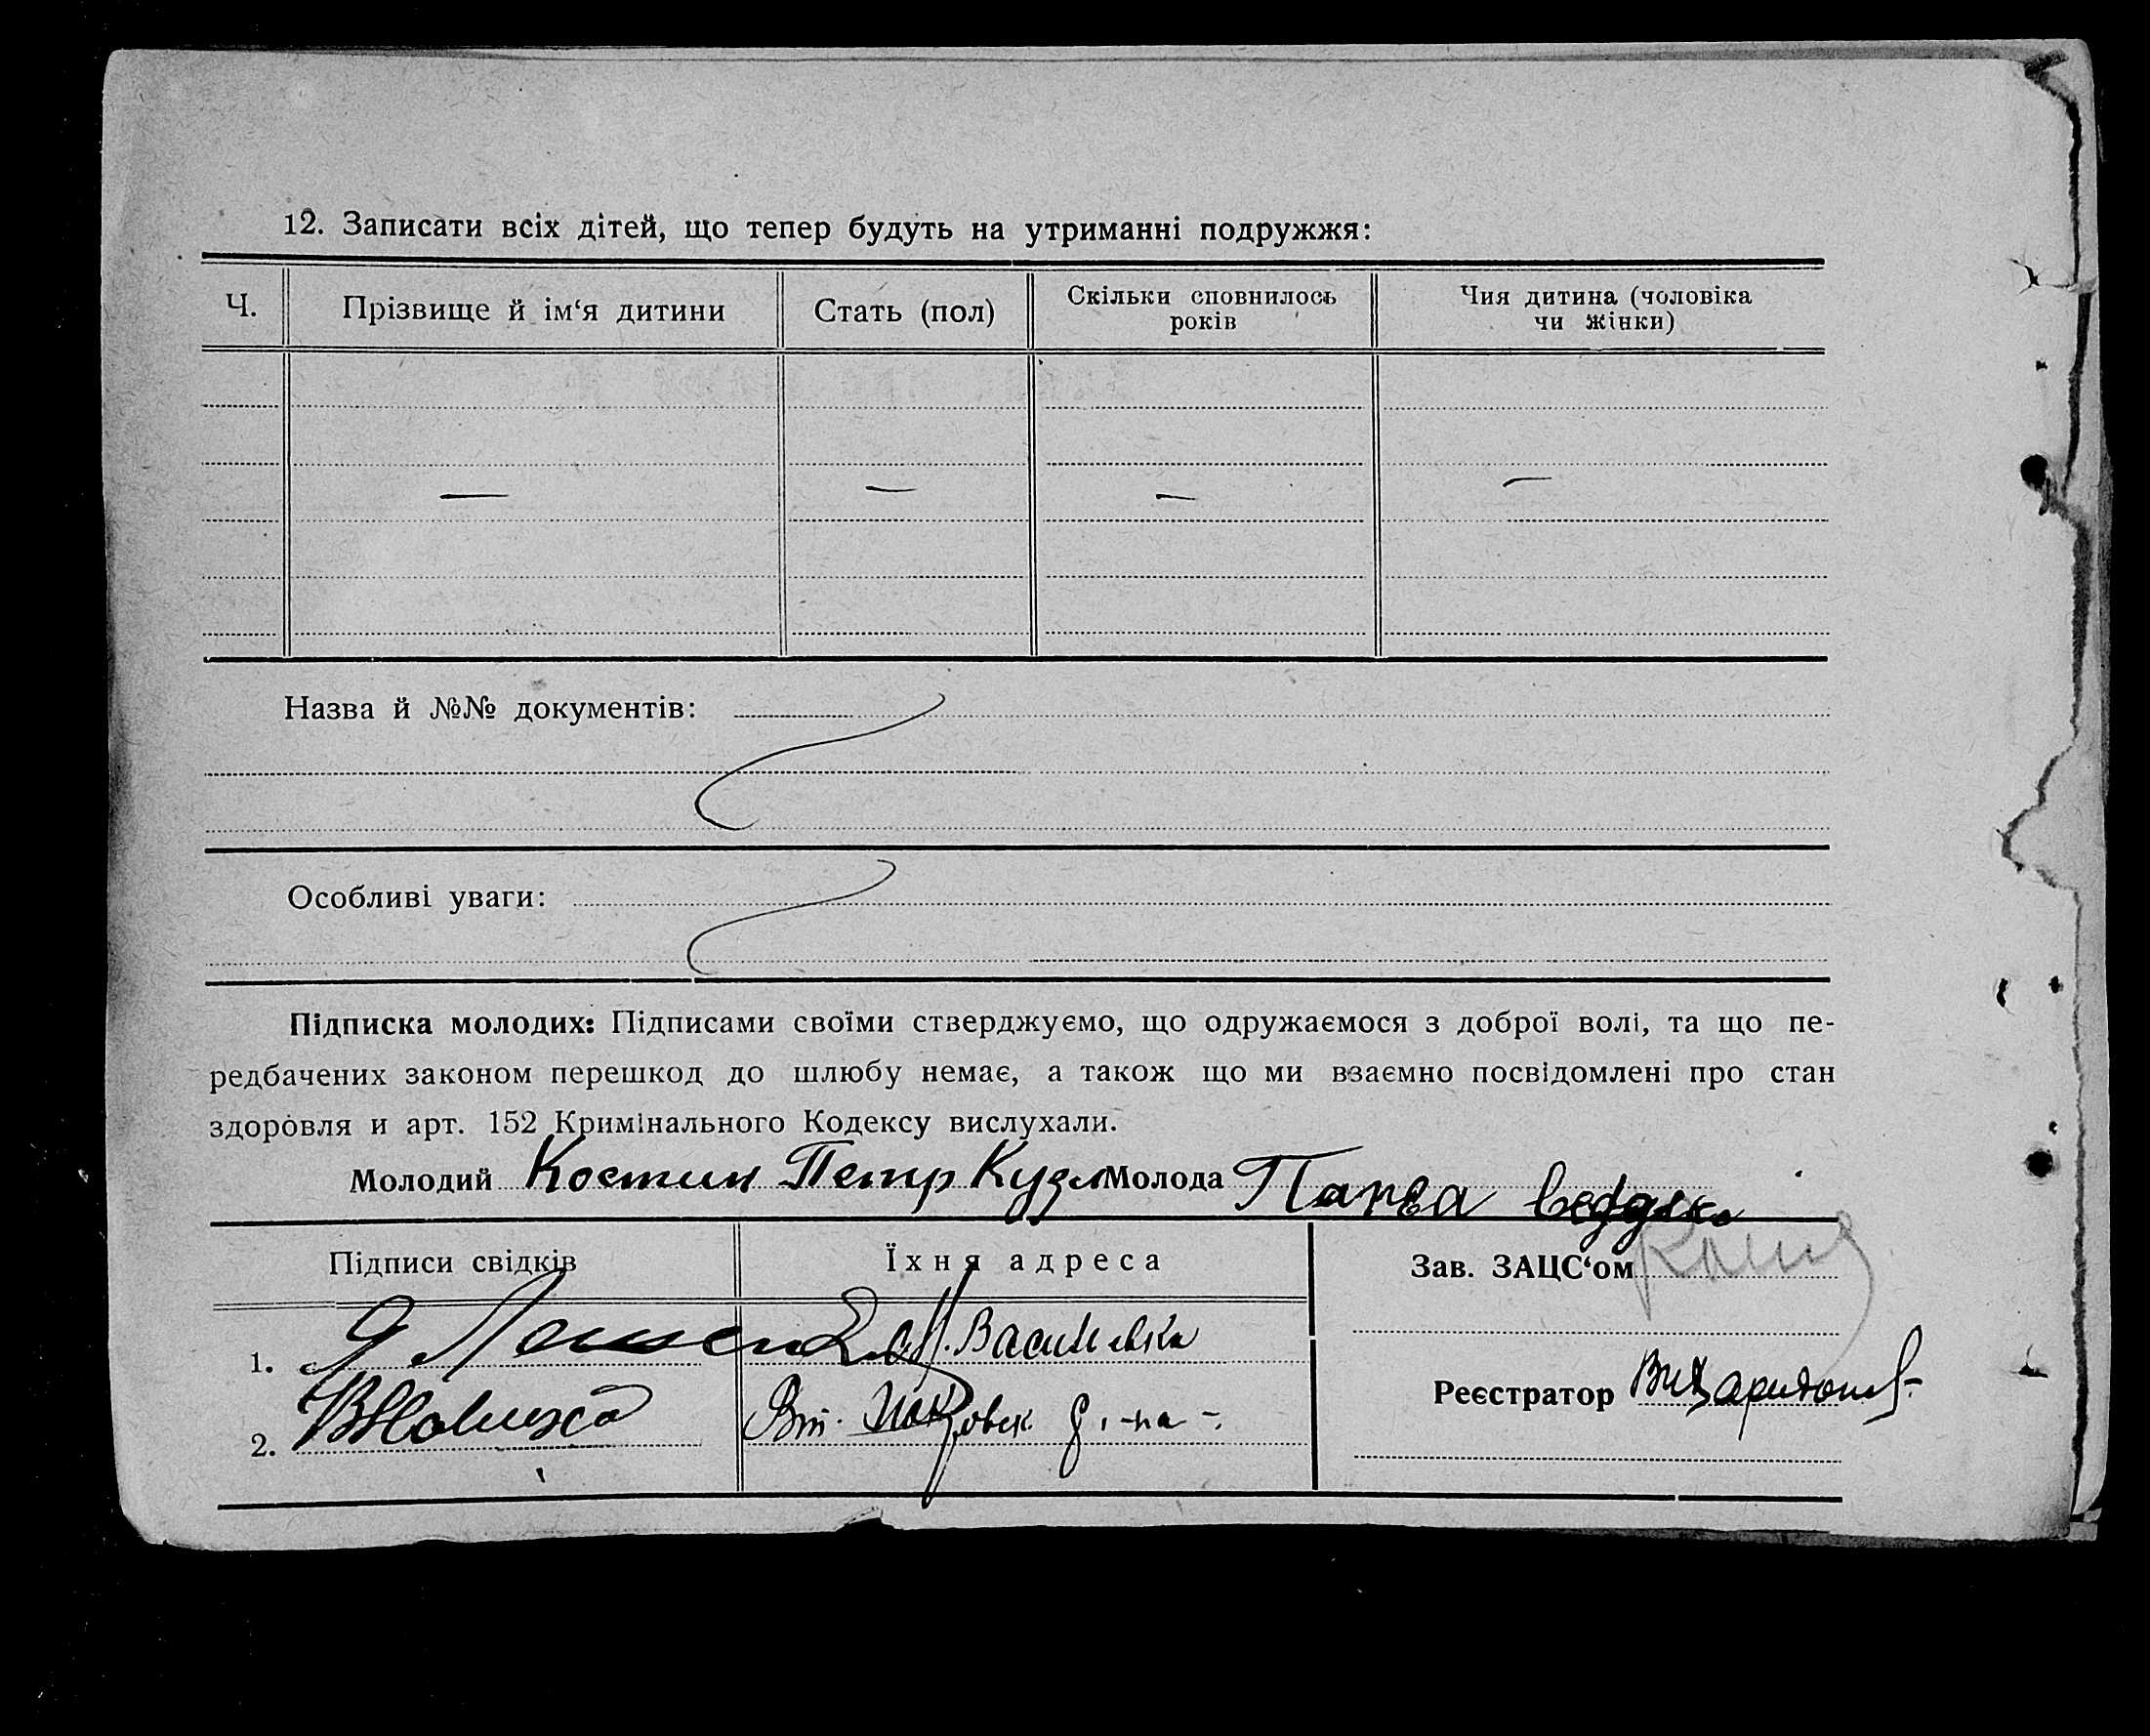 12. Записати всіх дітей, що тепер будуть на утриманні подружжя:
Ч. Прізвище й ім‘я дитини Стать (пол) Скільки сповнилось років Чия дитина (чоловіка чи жінки)
— — — —
Назва й №№ документів:
Особливі уваги:
Підписка молодих: Підписами своїми стверджуємо, що одружаємося з доброї волі, та що пе-
редбачених законом перешкод до шлюбу немає, а також що ми взаємно посвідомлені про стан
здоровля и арт. 152 Кримінального Кодексу вислухали.
Молодий Костин Петр Кузм Молода
Підписи свідків Їхня адреса Зав. ЗАЦС‘ом
1. Василивка
Реєстратор
2.